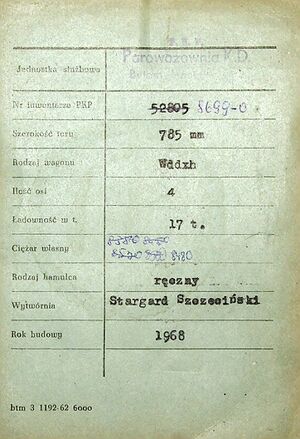 P.K.P.
Parowozownia K.D.
Jednostka służbowa
Nr inwentarza PKP 52805 8699-0
Szerokość toru 785 mm
Rodzaj wagonu Wddxh
Ilość osi 4
Ładowność w t. 17 t.
Ciężar własny
8480
Rodzaj hamulca ręczny
Wytwórnia Stargard Szczeciński
Rok budowy 1968
btm 3 1192-62 6000